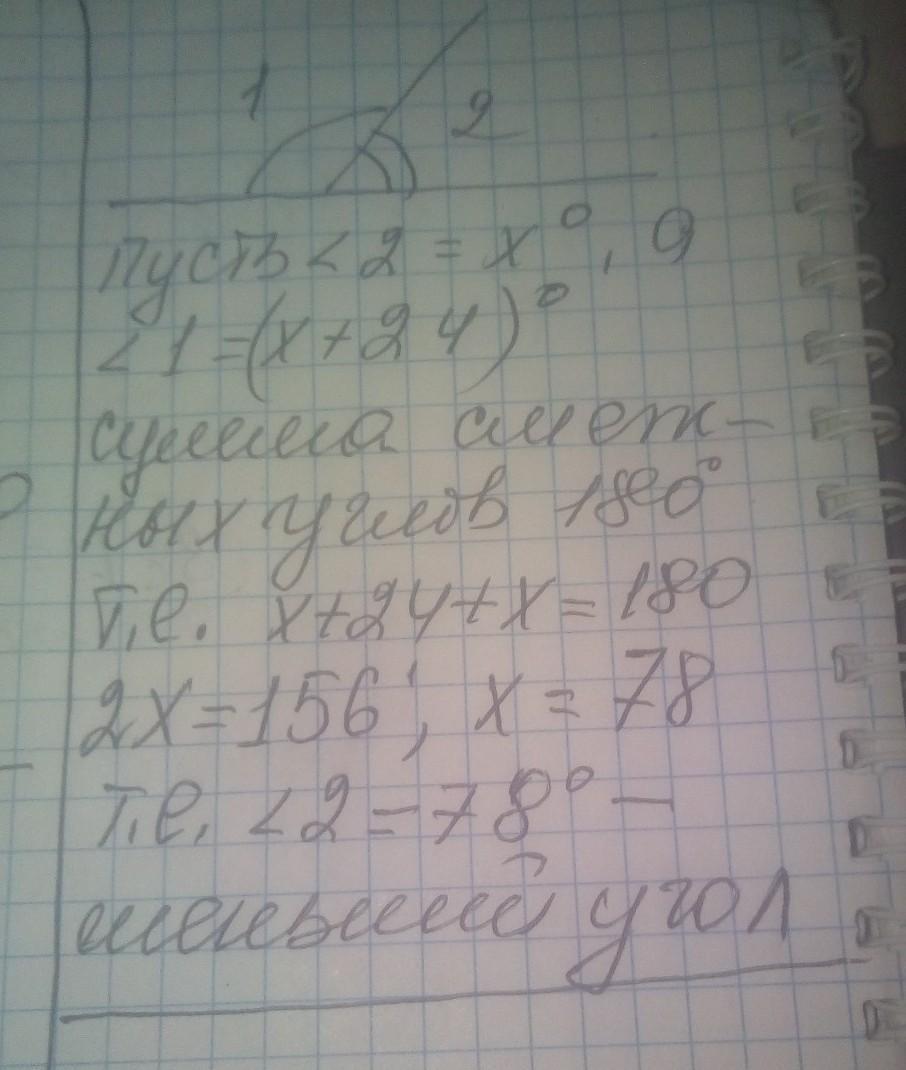 1
2
пусть < 2 = x°, а
< 1 = (x + 24)°
сумма смеж-
ных углов 180°
т.е. x + 24 + x = 180
2x = 156; x = 78
т.е. < 2 = 78° —
меньший угол